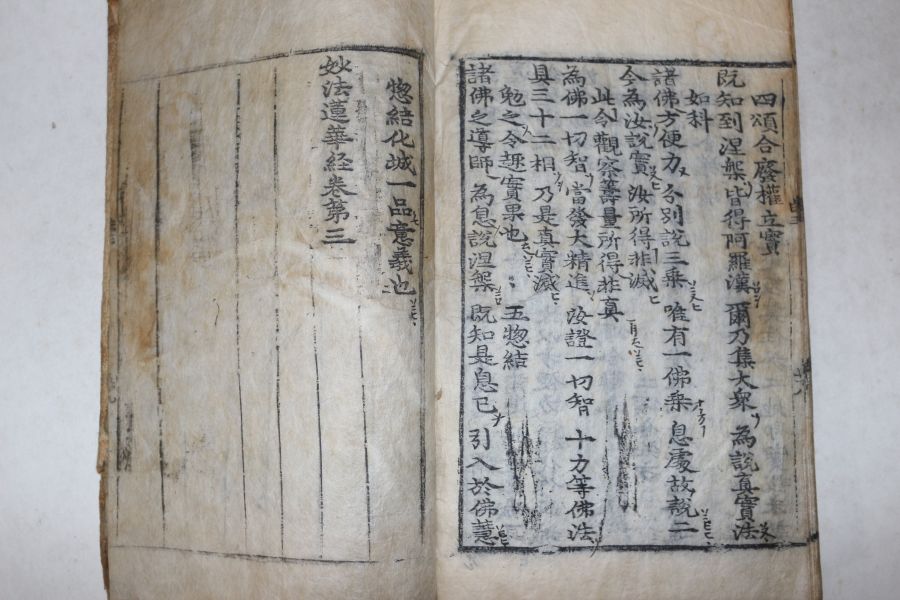 四頌合廢權立實
既知到涅槃 皆得阿羅漢 爾乃集大衆 為說真實法
如科
諸佛方便力 分別說三乗 唯有一佛乗 息處故說二
今為汝說實 汝所得非滅
此令觀察籌量所得非真
為佛一切智 當發大精進 汝證一切智 十方等佛法
具三十二相 乃是真實滅
勉之令趣實果也 五惣結
諸佛之導師 為息說涅槃 既知是息已 引入於佛慧
惣結化城一品意義也
妙法蓮華経卷第三